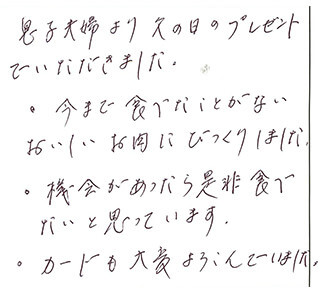 息子夫婦より父の日のプレゼント
でいただきました。
・今まで食べたことがない
おいしいお肉にびっくりしました。
・機会があったら是非食べ
たいと思っています。
・カードも大変よろこんでいました。